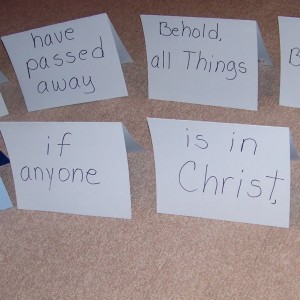 have
passed
away
Behold,
all Things
B
if
anyone
is in
Christ,